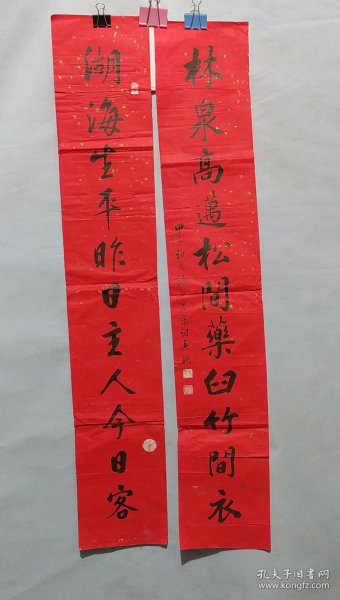 林泉高邁松間藥臼竹間衣
湖海生平昨日主人今日客
孔夫子旧书网
www.kongfz.com